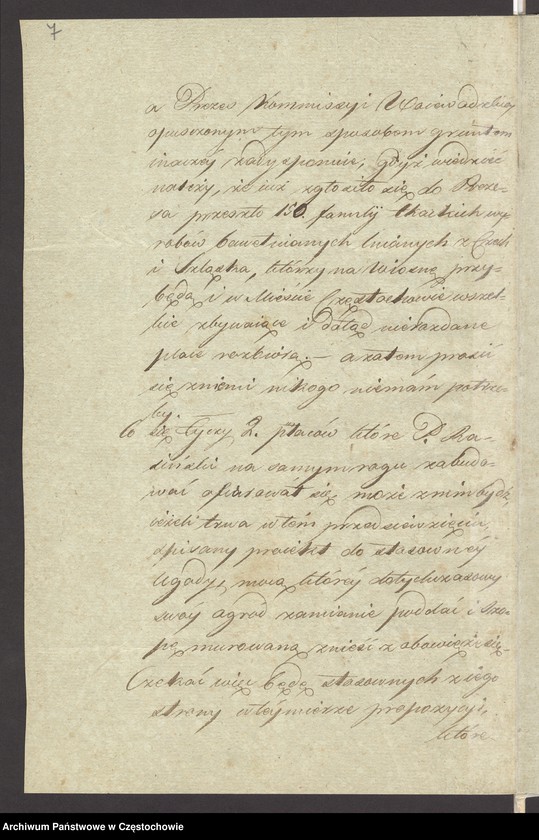 7
a Prezes Kommissyi Woiewodzkiey
opuszczonym tym sposobem gruntem
inaczéy zadysponuie, gdyż wiedzieć
należy, że iuż zgłosiło się do Preze-
sa przeszło 150. familij tkackich wy-
robów bawełnianych lnianych z Czech
i Szląska, którzy na Wiosnę przy-
będą i w Mieście Częstochowie wszel-
kie zbywaiące i dotąd nierozdane
place rozbiorą. — a zatem prosić
się z niemi nikogo niemam potrze-
by.
Co się tyczy 2. placów które P. Ra-
siński na samym rogu zabudo-
wać ofiarował się, może z nim bydź,
ieżeli trwa w tém przedsięwzięciu,
spisany proiekt do stosownéy
Ugody, mocą któréy dotychczasowy
swóy ogród zamianie poddać i Szo-
pę murowaną znieść zobowiąże się.
Czekać więc będę stosownych z iego
strony w téy mierze propozycyi,
które
Archiwum Państwowe w Częstochowie